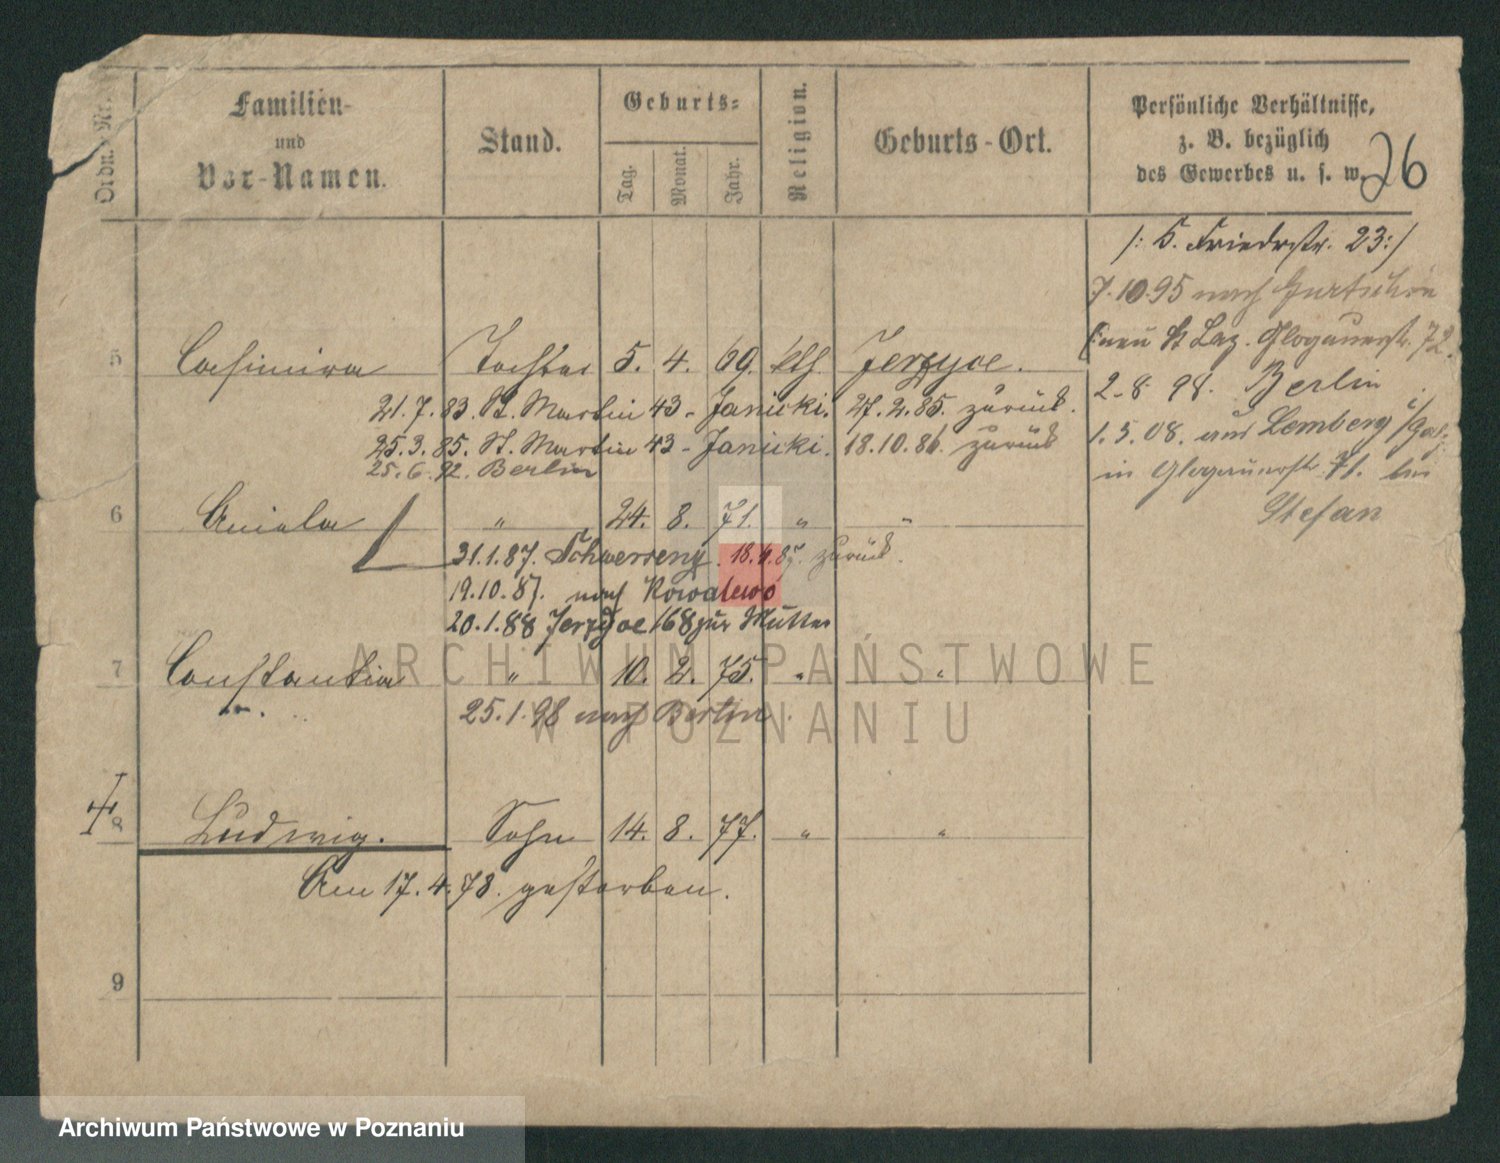 Ordn. Nr.
Familien-
und
Vor-Namen.
Stand.
Geburts-
Tag.
Monat.
Jahr.
Religion.
Geburts-Ort.
Persönliche Verhältnisse,
z. B. bezüglich
des Gewerbes u. s. w.
26
/: K. Friedrstr. 23:/
7.10.95 nach Gurtschin
(neu St Laz. Glogauerstr. 72.
5 Casimira Tochter 5. 4. 69. kth. Jerzyce.
2.8.98. Berlin
21.7.83. St. Martin 43 - Janicki. 27.2.85. zurück.
1.5.08. aus Lemberg i/Gal.
25.3.85. St. Martin 43 - Janicki. 18.10.86. zurück
in Glogauerstr. 71. bei
25.6.92. Berlin
Stefan
6 Aniela " 24. 8. 71. " "
31.1.87. Schwersenz. 18.4.87. zurück.
19.10.87. nach Kowalewo
20.1.88 Jerzyce 168 zur Mutter
7 Constantia " 10. 2. 75. " "
25.1.98 nach Berlin.
8 Ludwig. Sohn 14. 8. 77. " "
Am 17.4.78. gestorben.
9
ARCHIWUM PAŃSTWOWE
W POZNANIU
Archiwum Państwowe w Poznaniu